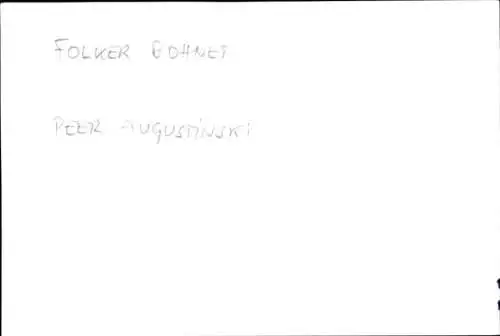 FOLKER BOHNET
PEER AUGUSTINSKI